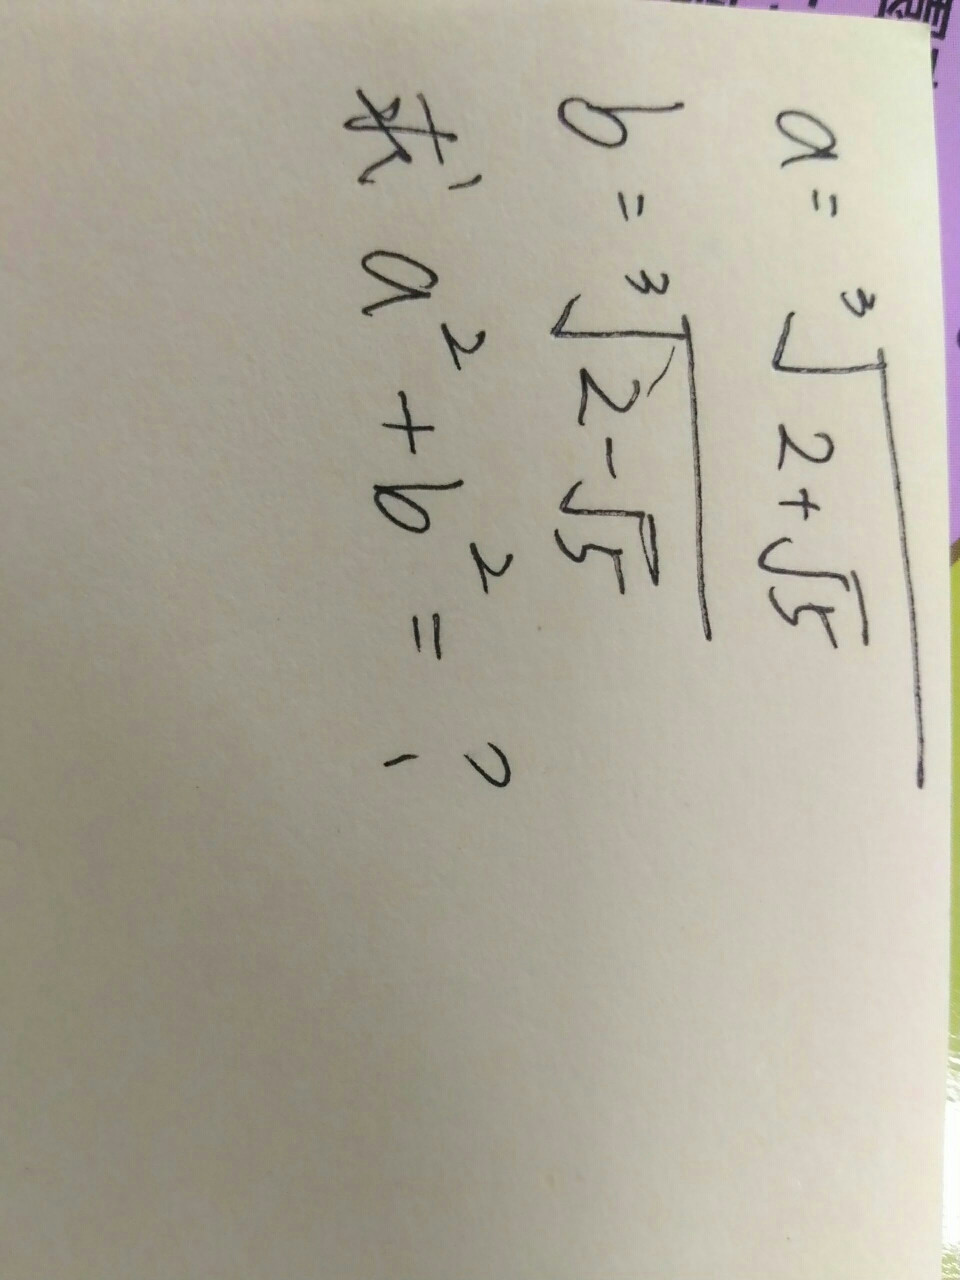 a = ³√(2+√5)
b = ³√(2-√5)
求 a² + b² = ?